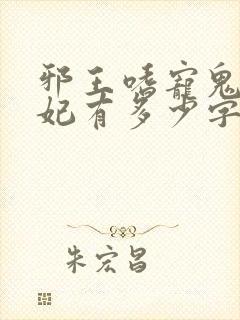 邪王嗜宠鬼
妃有多少字
朱宏昌